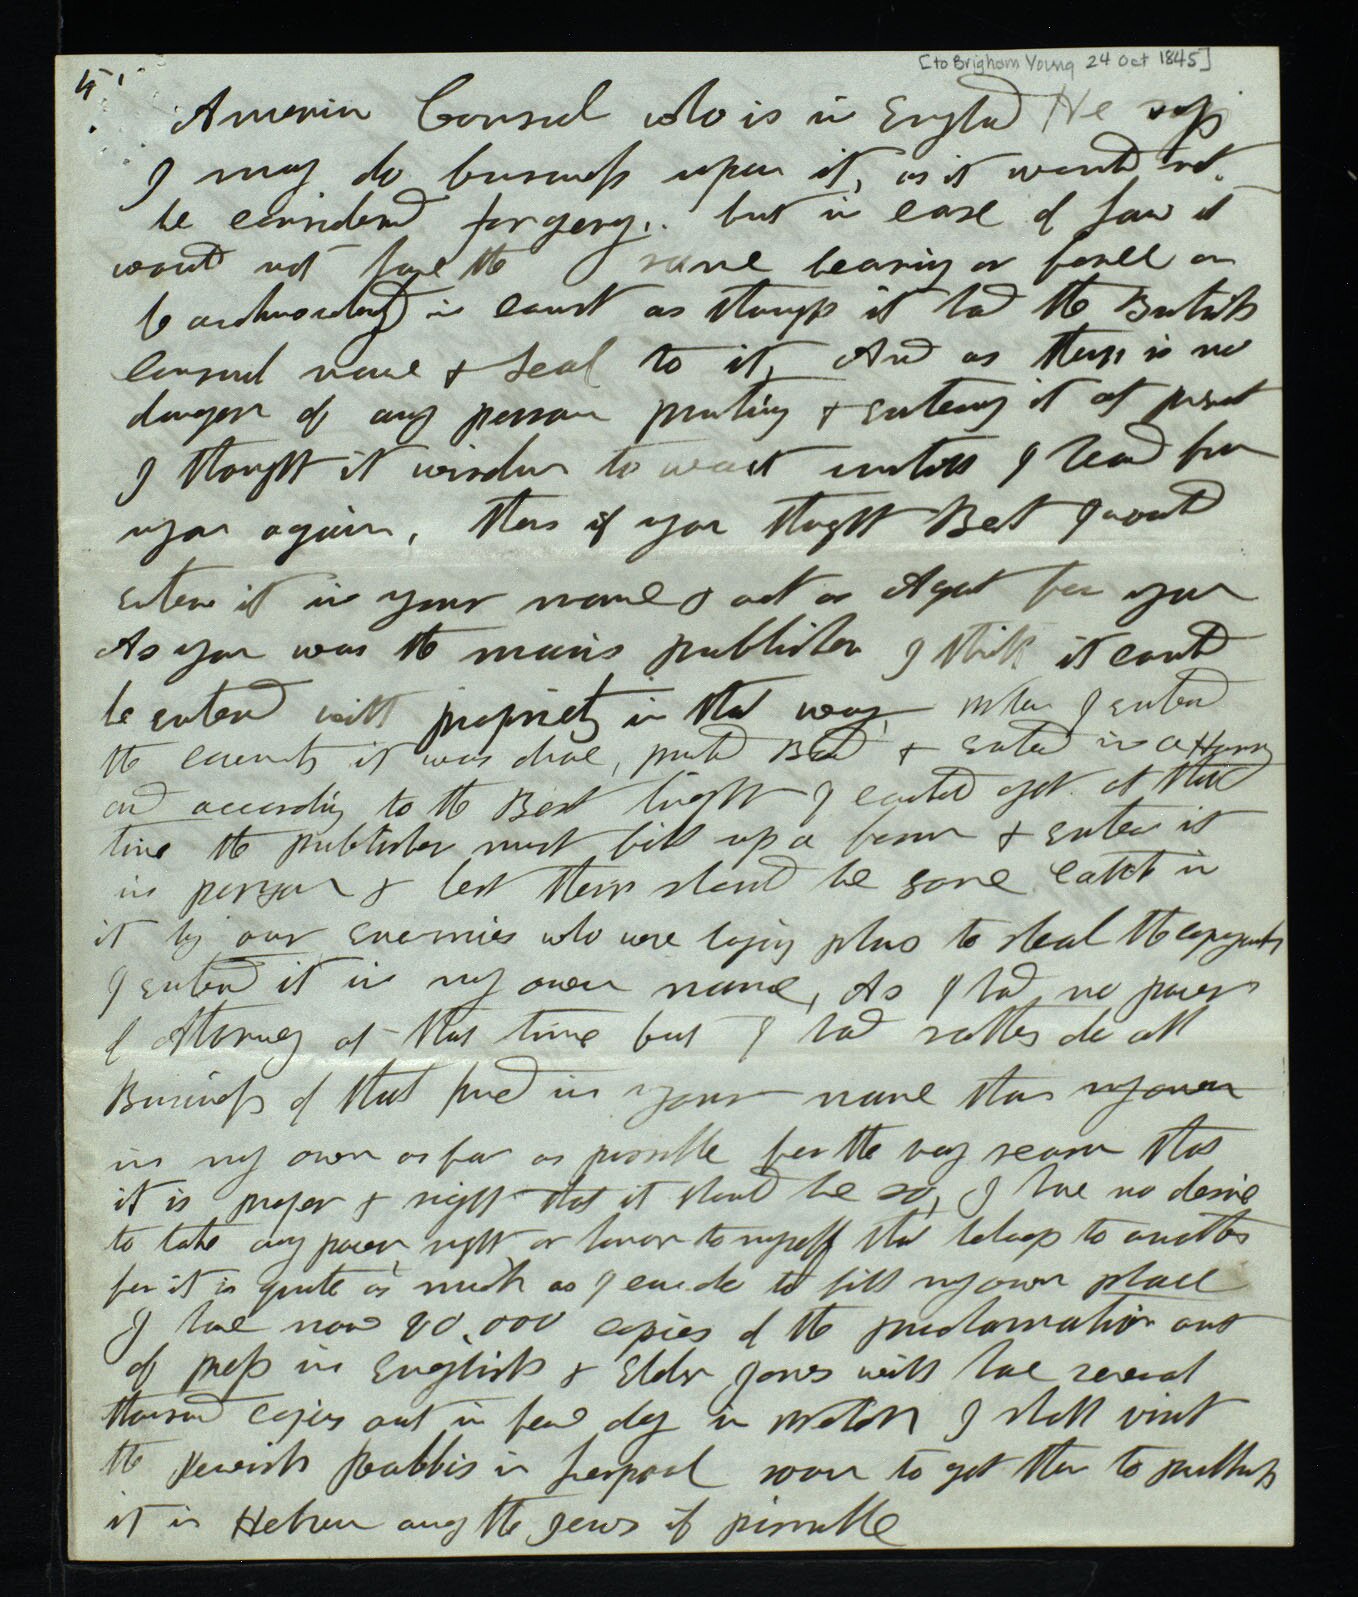 [to Brigham Young 24 Oct 1845]
American Consul who is in England He says
I may do business upon it, as it would not
be considered forgery,. but in case of law it
would not have the same bearing or force or
be acknowledged in court as though it had the British
Consul name & Seal to it, And as there is no
danger of any person printing & entering it at present
I thought it wisdom to wait untill I heard from
you again, then if you thought Best I would
enter it in your name & act as Agent for you
As you was the main publisher I think it could
be entered with propriety in that way, when I entered
the covenants it was done, printed Bound & entered in a Hurry
and according to the Best light I could get at that
time the publisher must fill up a form & enter it
in person & lest there should be some catch in
it by our enemies who were laying plans to steal the copyright
I entered it in my own name, As I had no power
of Attorney at that time but I had rather do all
Business of that kind in your name than my own
in my own as far as possible for the very reason that
it is proper & right that it should be so, I have no desire
to take any power, right or honor to myself that belongs to another
for it is quite as much as I can do to fill my own place
I have now 20,000 copies of the proclamation out
of press in English & Elder Jones will have several
thousand copies out in few days in Welch I shall visit
the Jewish Rabbis in Liverpool soon to get them to publish
it in Hebrew among the Jews if possible